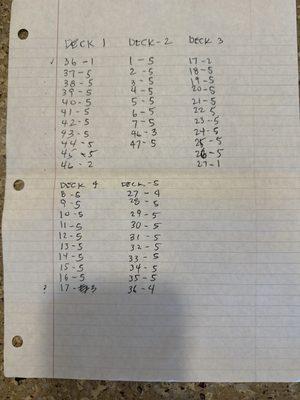 DECK 1 DECK-2 DECK 3
36-1 1-5 17-2
37-5 2-5 18-5
38-5 3-5 19-5
39-5 4-5 20-5
40-5 5-5 21-5
41-5 6-5 22-5
42-5 7-5 23-5
43-5 46-3 24-5
44-5 47-5 25-5
45-5 26-5
46-2 27-1
DECK 4 DECK-5
8-5 27-4
9-5 28-5
10-5 29-5
11-5 30-5
12-5 31-5
13-5 32-5
14-5 33-5
15-5 34-5
16-5 35-5
17-3 36-4